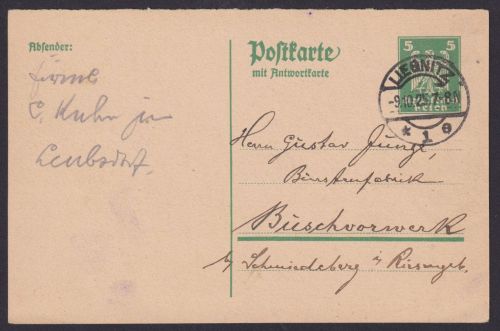 Absender:
Firma
C. Kuhn jn
Leubsdorf.
Postkarte
mit Antwortkarte
5 5
LIEGNITZ
-9.10.25.7-8N
* 1 e
Herrn Gustav Junge,
Bürstenfabrik
Buschvorwerk
b/ Schmiedeberg i/ Riesengeb.